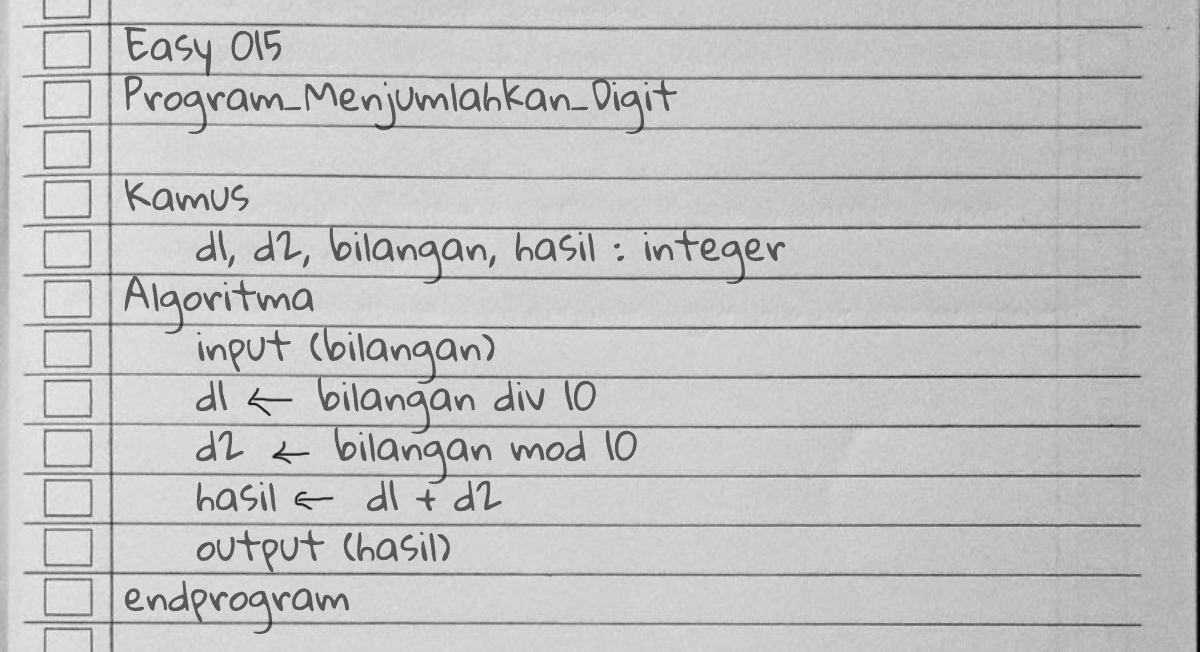 Easy 015
Program_Menjumlahkan_Digit
Kamus
d1, d2, bilangan, hasil : integer
Algoritma
input (bilangan)
d1 ← bilangan div 10
d2 ← bilangan mod 10
hasil ← d1 + d2
output (hasil)
endprogram